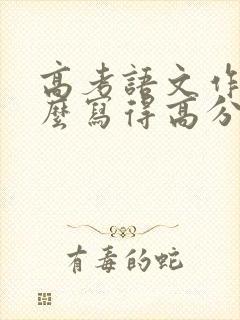 高考語文作
麼寫得高分
有毒的蛇